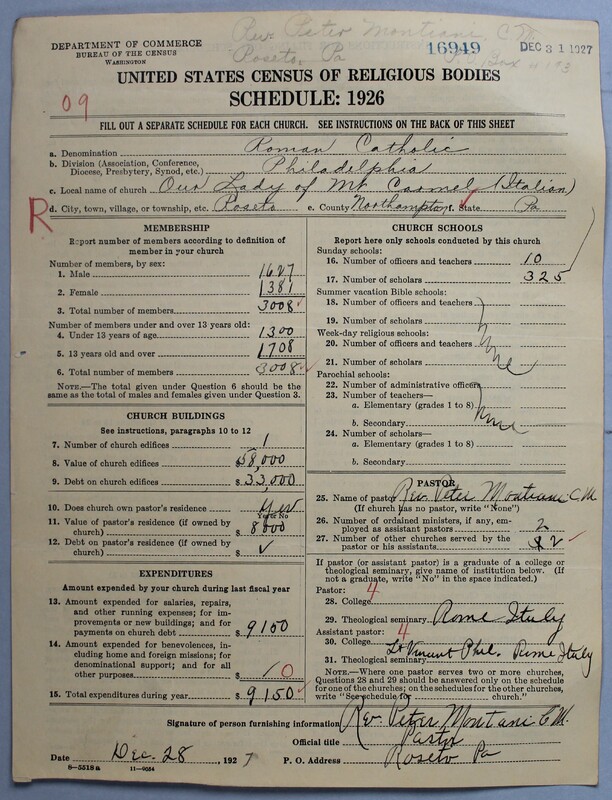 Rev Peter Montiani, C.M.
Roseto, Pa
P.O. Box
DEPARTMENT OF COMMERCE
BUREAU OF THE CENSUS
WASHINGTON
16949
DEC 31 1927
UNITED STATES CENSUS OF RELIGIOUS BODIES
SCHEDULE: 1926
09
FILL OUT A SEPARATE SCHEDULE FOR EACH CHURCH. SEE INSTRUCTIONS ON THE BACK OF THIS SHEET
a. Denomination Roman Catholic
b. Division (Association, Conference, Diocese, Presbytery, Synod, etc.) Philadelphia
c. Local name of church Our Lady of Mt Carmel (Italian)
R
d. City, town, village, or township, etc. Roseto e. County Northampton f. State Pa
MEMBERSHIP
Report number of members according to definition of
member in your church
Number of members, by sex:
1. Male 1627
2. Female 1381
3. Total number of members 3008
Number of members under and over 13 years old:
4. Under 13 years of age 1300
5. 13 years old and over 1708
6. Total number of members 3008
NOTE.—The total given under Question 6 should be the
same as the total of males and females given under Question 3.
CHURCH BUILDINGS
See instructions, paragraphs 10 to 12
7. Number of church edifices 1
8. Value of church edifices $58,000
9. Debt on church edifices $33,000
10. Does church own pastor's residence Yes
Yes or No
11. Value of pastor's residence (if owned by
church) $ 8000
12. Debt on pastor's residence (if owned by
church) $ ✓
EXPENDITURES
Amount expended by your church during last fiscal year
13. Amount expended for salaries, repairs,
and other running expenses; for im-
provements or new buildings; and for
payments on church debt $ 9150
14. Amount expended for benevolences, in-
cluding home and foreign missions; for
denominational support; and for all
other purposes $ 0
15. Total expenditures during year $ 9150
CHURCH SCHOOLS
Report here only schools conducted by this church
Sunday schools:
16. Number of officers and teachers 10
17. Number of scholars 325
Summer vacation Bible schools:
18. Number of officers and teachers
19. Number of scholars
Week-day religious schools:
20. Number of officers and teachers
21. Number of scholars
none
Parochial schools:
22. Number of administrative officers
23. Number of teachers—
a. Elementary (grades 1 to 8)
b. Secondary
none
24. Number of scholars—
a. Elementary (grades 1 to 8)
b. Secondary
PASTOR
25. Name of pastor Rev. Peter Montiani C.M.
(If church has no pastor, write "None")
26. Number of ordained ministers, if any, em-
ployed as assistant pastors 2
27. Number of other churches served by the
pastor or his assistants 2
If pastor (or assistant pastor) is a graduate of a college or
theological seminary, give name of institution below. (If
not a graduate, write "No" in the space indicated.)
Pastor:
28. College 4
29. Theological seminary Rome Italy
Assistant pastor:
30. College 4
St Vincent Phil. Rome Italy
31. Theological seminary
NOTE.—Where one pastor serves two or more churches,
Questions 28 and 29 should be answered only on the schedule
for one of the churches; on the schedules for the other churches,
write "See schedule for church."
Signature of person furnishing information Rev. Peter Montiani C.M.
Official title Pastor
Date Dec. 28, 1927 P. O. Address Roseto Pa
8—5518a 11—9054